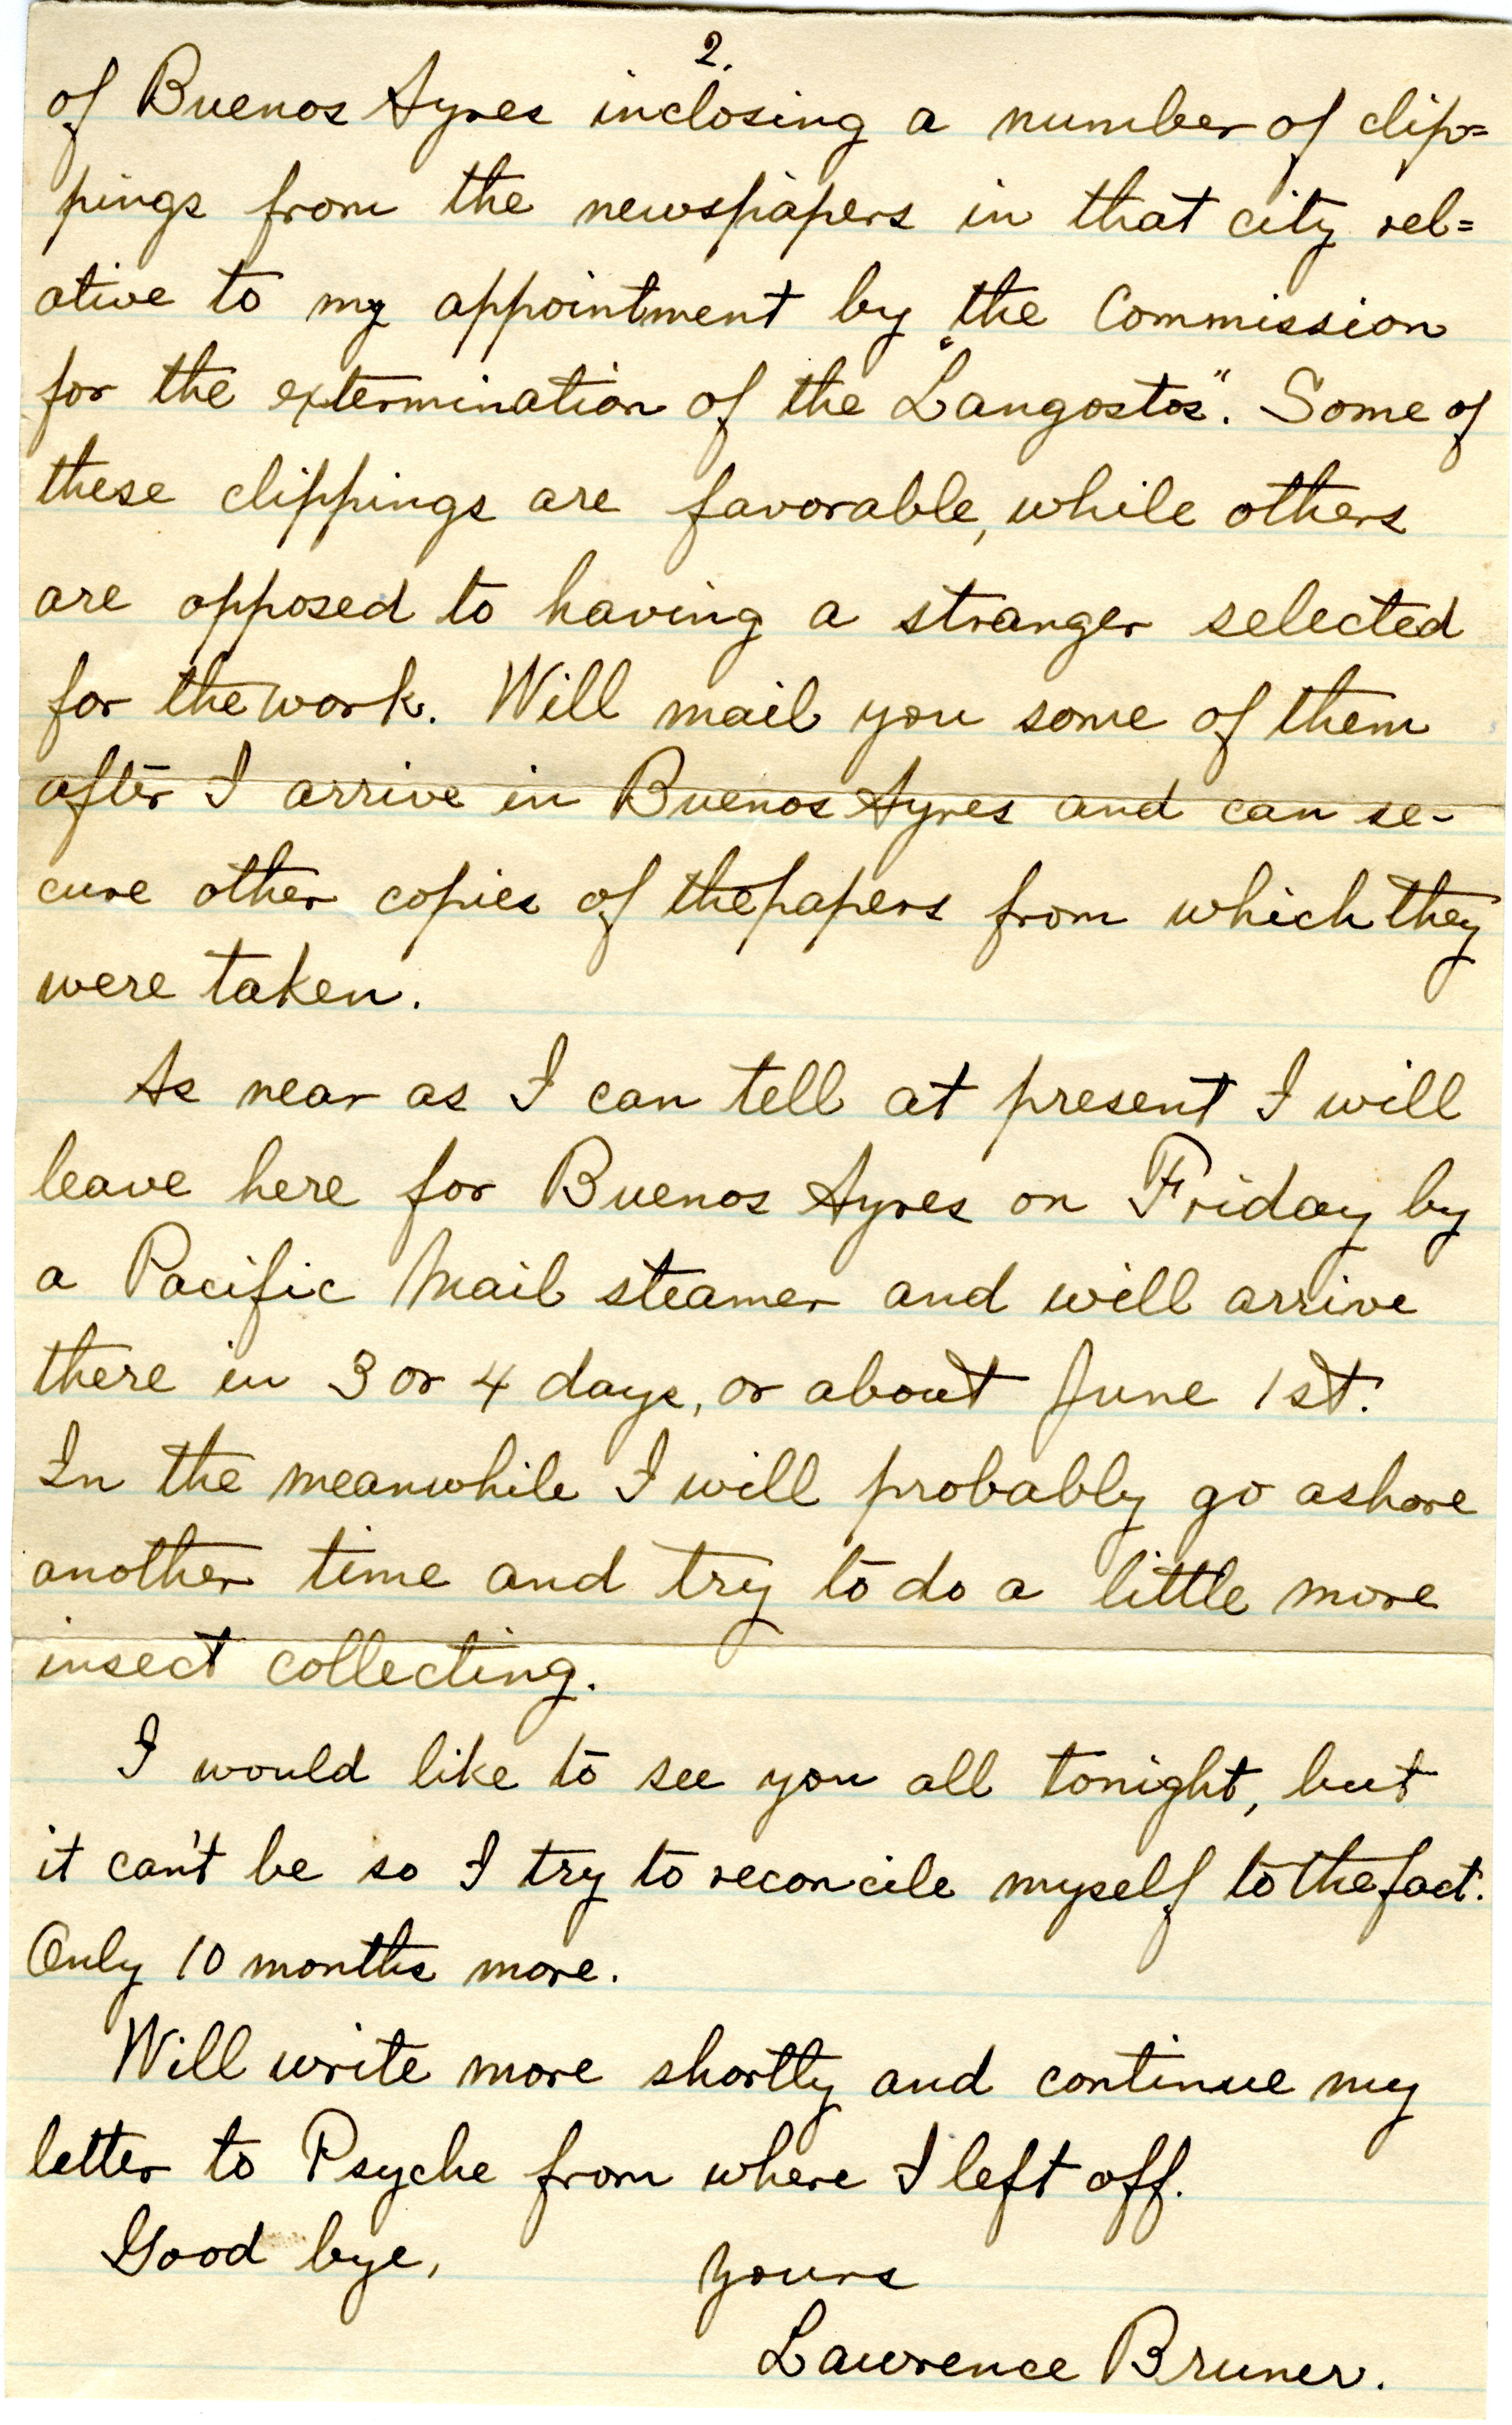 2.
of Buenos Ayres inclosing a number of clip=
pings from the newspapers in that city rel=
ative to my appointment by the Commission
for the extermination of the "Langostos". Some of
these clippings are favorable, while others
are opposed to having a stranger selected
for the work. Will mail you some of them
after I arrive in Buenos Ayres and can se-
cure other copies of the papers from which they
were taken.
As near as I can tell at present I will
leave here for Buenos Ayres on Friday by
a Pacific Mail steamer and will arrive
there in 3 or 4 days, or about June 1st.
In the meanwhile I will probably go ashore
another time and try to do a little more
insect collecting.
I would like to see you all tonight, but
it can't be so I try to reconcile myself to the fact.
Only 10 months more.
Will write more shortly and continue my
letter to Psyche from where I left off.
Good bye, Yours
Lawrence Bruner.